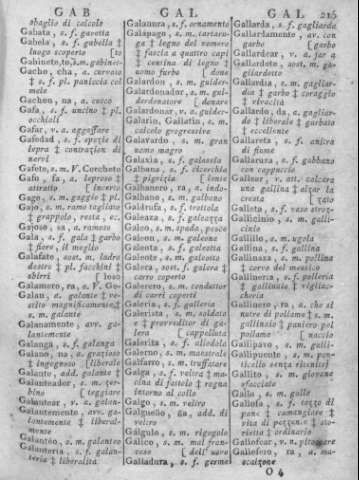 GAB GAL GAL 215
sbaglio di calcolo
Gabata, s. f. gavetta
Gabela, s. f. gabella ‡
luogo scoperto [to
Gabinete,to, s.m. gabinet-
Gacho, cha, a. curvato
‡ s. f. pl. paniccia col
mele
Gachon, na, a. cucco
Gafa, s. f. uncino ‡ pl.
occhiali
Gafar, v. a. aggaffare
Gafedad, s. f. spezie di
lepra ‡ contrazion di
nervi
Gafete, s. m. V. Corchete
Gafo, fa, a. leproso ‡
attratto [incerto
Gago, s. m. gaggio ‡ pl.
Gajo, s. m. ramo tagliato
‡ grappolo, resta, ec.
Gajoso, sa, a. ramoso
Gala, s. f. gala ‡ garbo
‡ fiore, il meglio
Galafate, s. m. ladro
destro ‡ pl. facchini ‡
sbirri [roso
Galamero, ra, a. V. Go-
Galan, a. galante ‡ ve-
stito magnificamente ‡
s. m. galante
Galanamente, av. ga-
lantemente
Galanga, s. f. galanga
Galano, na, a. grazioso
‡ ingegnoso [liberale
Galante, add. galante ‡
Galanteador, s. m. zer-
bino [teggiare
Galantear, v. a. galan-
Galantemente, avv. ga-
lantemente ‡ liberal-
mente
Galantéo, s. m. galanteo
Galantería, s. f. galan-
teria ‡ liberalità
Galanura, s. f. ornamento
Galápago, s. m. tartaru-
ga ‡ legno del vomero
‡ fascia a quattro capi
‡ centina di legno ‡
uomo furbo [done
Galardon, s. m. guider-
Galardonador, s. m. gui-
derdonatore [donare
Galardonar, v. a. guider-
Galarin, Gallerin, s. m.
calcolo progressivo
Galavardo, s. m. gran
uomo magro
Galaxia, s. f. galassia
Galbana, s. f. cicerchia
‡ pigrizia [lente
Galbanero, ra, a. indo-
Galbano, s. m. galbano
Galdrufa, s. f. trottola
Galeaza, s. f. galeazza
Galeo, s. m. spada, pesce
Galeon, s. m. galeone
Galeota, s. f. galeotta
Galeote, s. m. galeotto
Galera, s. f. galera ‡
carro coperto
Galerero, s. m. conduttor
di carri coperti
Galería, s. f. galleria
Galerista, s. m. soldato
e provveditor di ga-
lera [cappellata
Galerita, s. f. allodola
Galerno, s. m. maestrale
Galfarro, s. m. truffatore
Galga, s. f. veltra ‡ ma-
cina di fattojo ‡ rogna
intorno al collo
Galgo, s. m. veltro
Galgueño, ña, add. di
veltro
Gálgulo, s. m. rigogolo
Gálico, s. m. mal fran-
cese [dell' uave
Galladura, s. f. germe
Gallarda, s. f. gagliarda
Gallardamente, av. con
garbo [garbo
Gallardear, v. a. far a
Gallardete, sost. m. ga-
gliardetto
Gallardía, s. m. gagliar-
dia ‡ garbo ‡ coraggio
‡ vivacità
Gallardo, da, a. gagliar-
do ‡ liberale ‡ garbato
‡ eccellente
Gallareta, s. f. anitra
di fiume
Gallaruza, s. f. gabbano
con cappuccio
Gallear, v. att. calcare
una gallina ‡ alzar la
cresta [zato
Galleta, s. f. vaso stroz-
Gallicinio, s. m. galli-
cinio
Gallillo, s. m. ugola
Gallina, s. f. gallina
Gallinaza, s. m. pollina
‡ corvo del messico
Gallinería, s. f. galleria
‡ gallinajo ‡ vigliac-
cheria
Gallinero, ra, a. che si
nutre di pollame ‡ s. m.
gallinajo ‡ paniero pel
pollame [naccio
Gallipavo, s. m. galli-
Gallipuente, s. m. pon-
ticello senza ricinti
Gallito, s. m. giovane
sfacciato
Gallo, s. m. gallo
Gallofa, s. f. tozzo di
pane ‡ camangiare ‡
vita di pezzente ‡ sto-
rietta ‡ ordinario
Gallofear, v. n. pitoccare
Gallofero, ra, a. ma-
scalzone
O 4